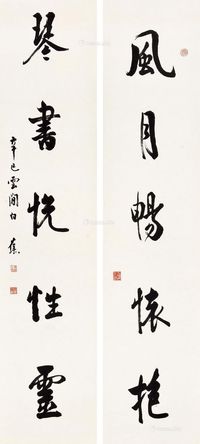 風月暢懷抱
琴書悅性靈
辛巳雲間白蕉